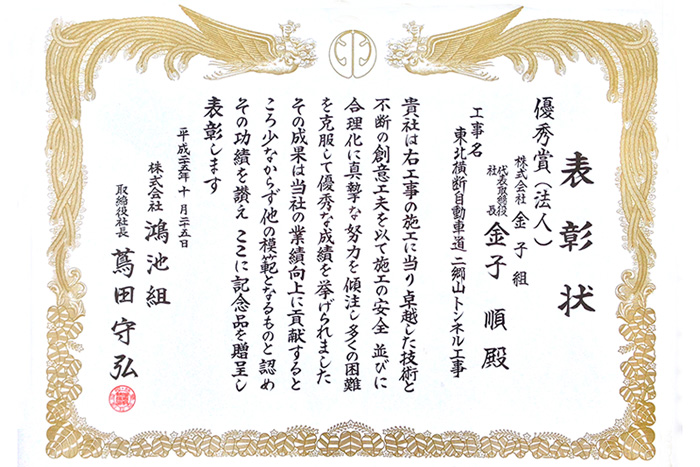 表彰状
優秀賞（法人）
株式会社 金子組
代表取締役社長 金子 順 殿
工事名
東北横断自動車道 二郷山トンネル工事
貴社は右工事の施工に当り卓越した技術と
不断の創意工夫を以て施工の安全 並びに
合理化に真摯な努力を傾注し多くの困難
を克服して優秀な成績を挙げられました
その成果は当社の業績向上に貢献すると
ころ少なからず他の模範となるものと認め
その功績を讃え ここに記念品を贈呈し
表彰します
平成二十五年十月二十五日
株式会社 鴻池組
取締役社長 蔦田守弘